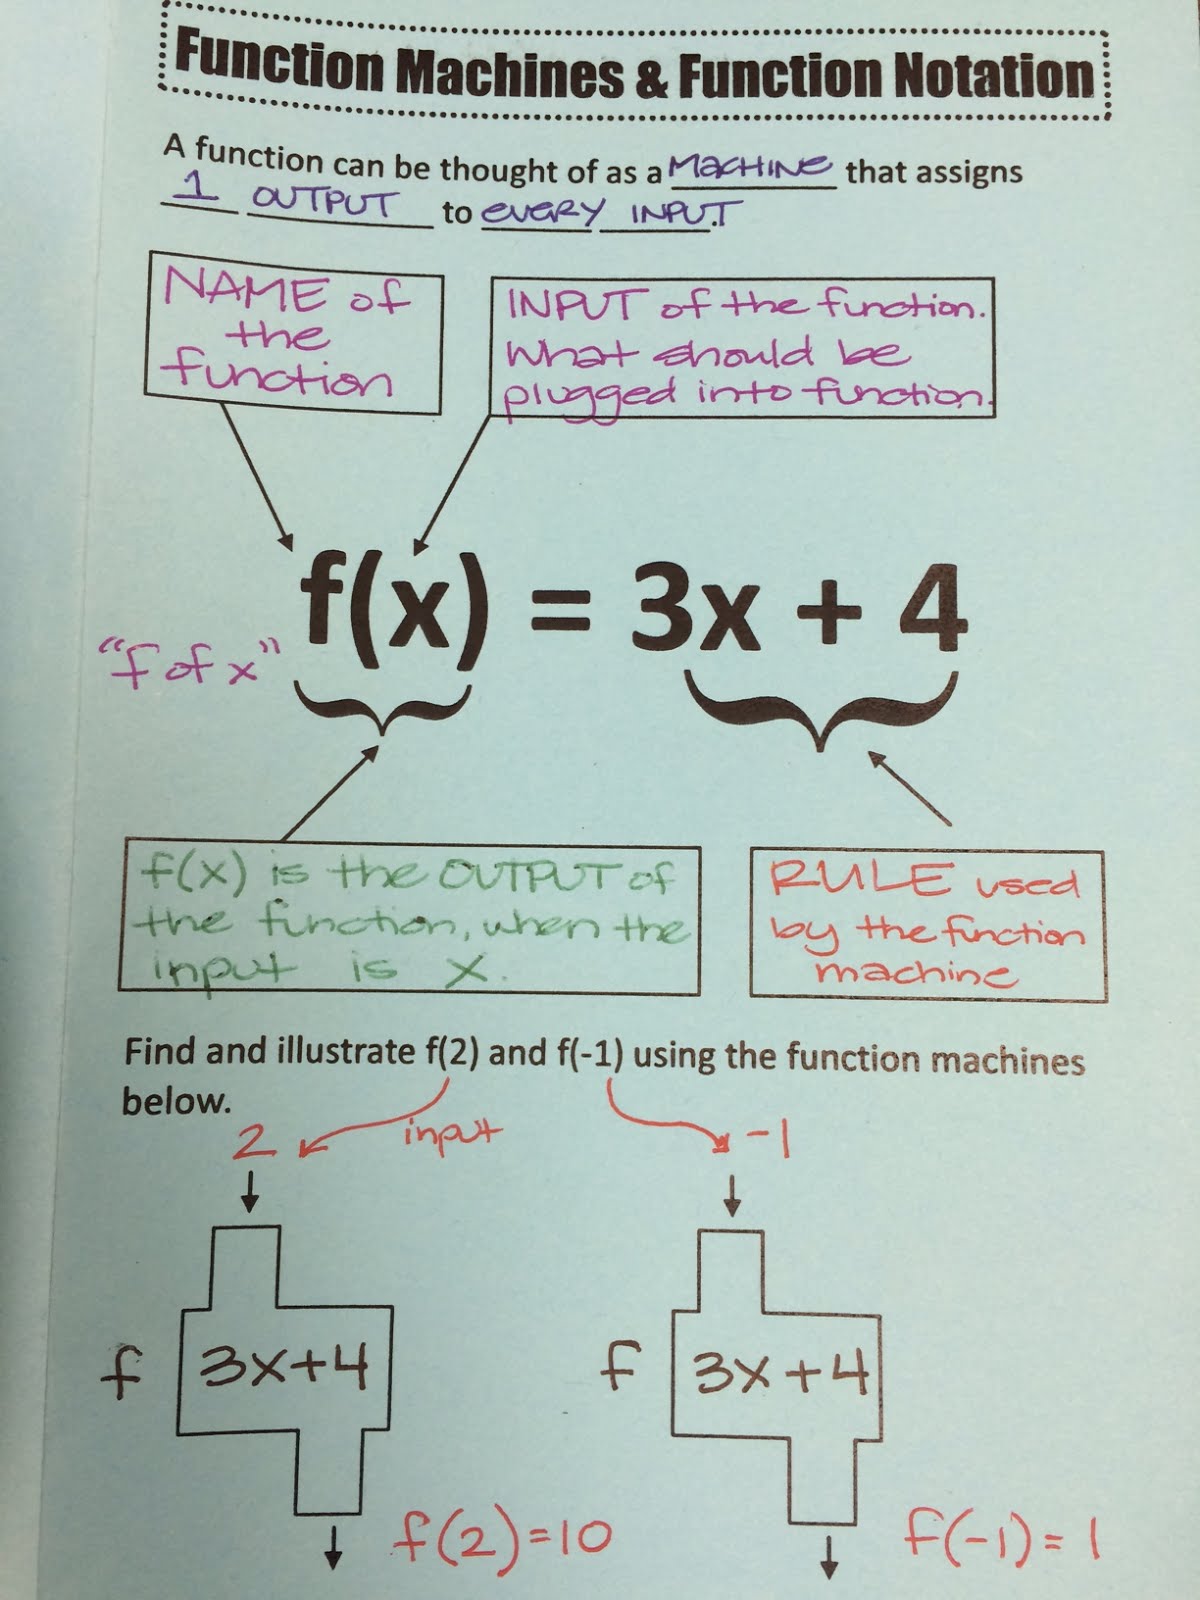 Function Machines & Function Notation
A function can be thought of as a MACHINE that assigns
1 OUTPUT to EVERY INPUT.
NAME of
the
function
INPUT of the function.
What should be
plugged into function.
f(x) = 3x + 4
"f of x"
f(x) is the OUTPUT of
the function, when the
input is x.
RULE used
by the function
machine
Find and illustrate f(2) and f(-1) using the function machines
below.
2 input -1
f 3x+4 f 3x+4
f(2)=10 f(-1)=1